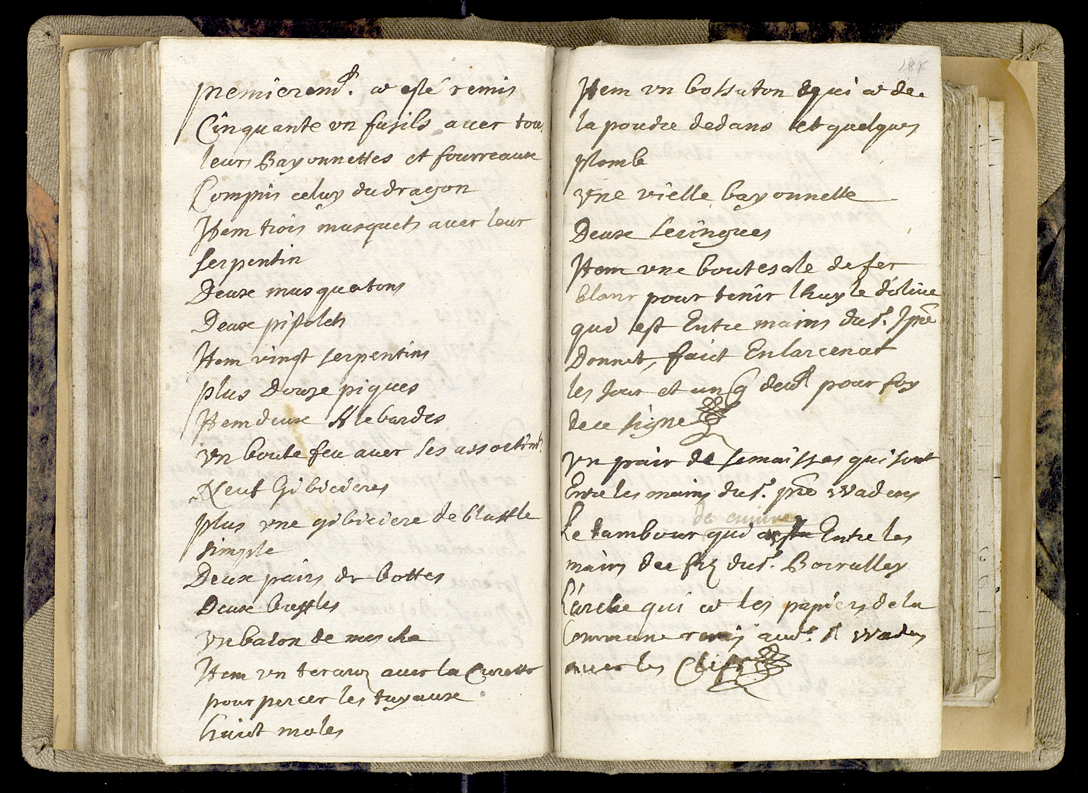 premierem.t a esté remis
Cinquante un fusils avec tou
leurs Bayonnettes et fourreaux
Compris celuy du dragon
Item trois musquets avec leur
serpentin
Deux musquatons
Deux pistolets
Item vingt serpentins
plus Douze piques
Item deux Alebardes
un boute feu avec ses assortim.t
Neuf Gibicieres
plus une gibiciere de
simple
Deux pairs de bottes
Deux buffles
un baton de meche
Item un avec la Curette
pour percer les tuyaux
huict moles
187
Item un qui a de
la poudre dedans et quelques
plomb
une vielle bayonnette
Deux seringues
Item une boutesale de fer
blanc pour tenir lhuyle dolive
qui est Entre mains du s.r
Donnet, faict En larcenac
les Jour et an q dessus pour foy
de ce signe
un pair de qui sont
Entre les mains du s.r Wadens
de cuivre
Le tambour qui Entre les
mains dee fiz du s.r
Larche qui a les papiers de la
Commune remis aud. s.r Wadens
avec les Clefs